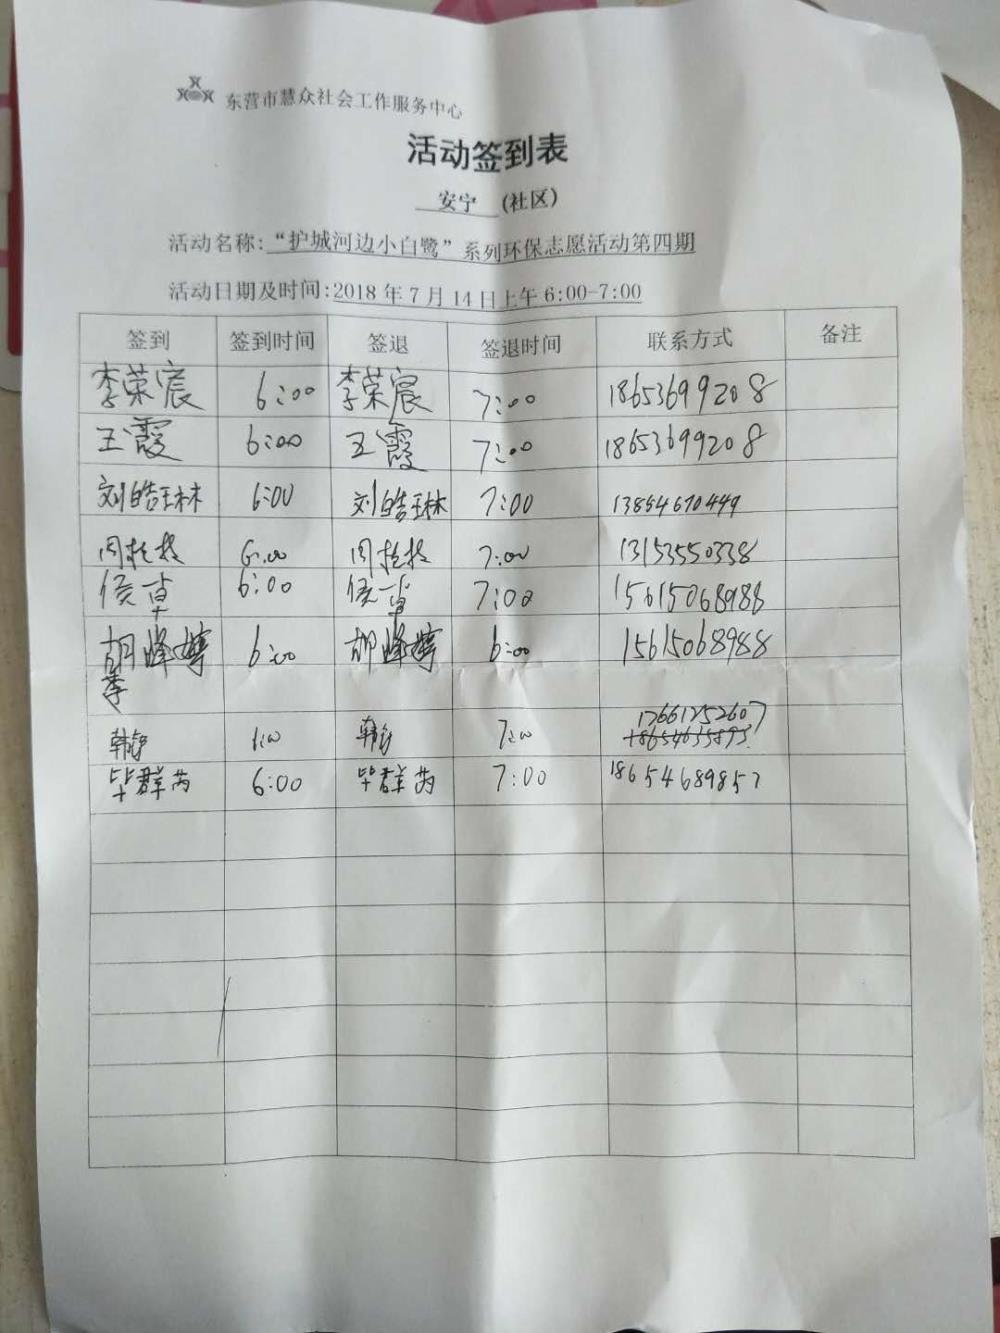 东营市慧众社会工作服务中心
活动签到表
安宁 (社区)
活动名称:“护城河边小白鹭”系列环保志愿活动第四期
活动日期及时间:2018年7月14日上午6:00-7:00
签到 签到时间 签退 签退时间 联系方式 备注
李荣宸 6:00 李荣宸 7:00 18653699208
王霞 6:00 王霞 7:00 18653699208
刘皓琳 6:00 刘皓琳 7:00 13854670449
6:00 7:00 13153550338
侯卓 6:00 侯卓 7:00 15615068988
胡峰娉 6:00 胡峰娉 6:00 15615068988
李
17661252607
韩 韩 7:00
毕群芮 6:00 毕群芮 7:00 18654689857